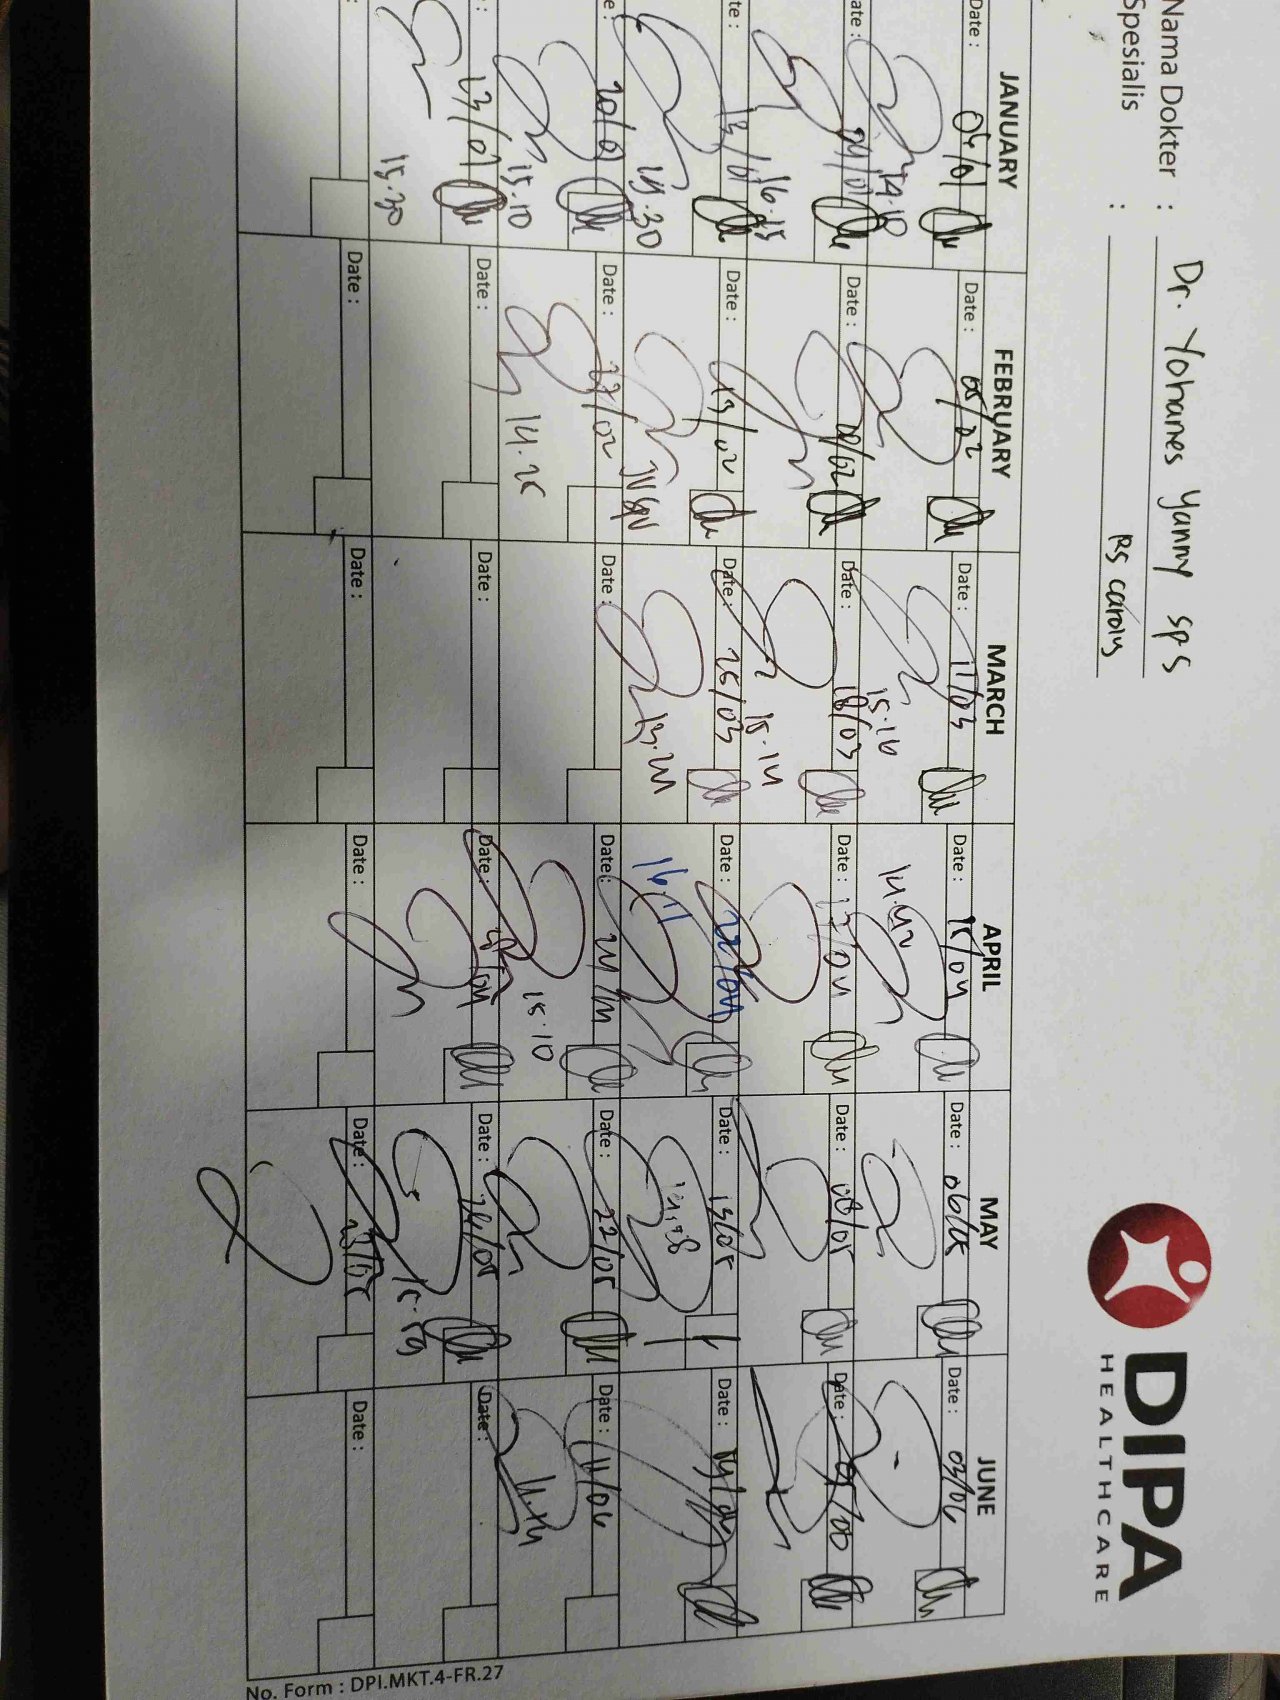 Nama Dokter : Dr. Yohanes Yanny sps
Spesialis : RS carolus
DIPA
HEALTHCARE
JANUARY FEBRUARY MARCH APRIL MAY JUNE
Date : 04/01 Date : 05/02 Date : 11/03 Date : 15/04 Date : 06/05 Date : 03/06
14.10 15.16 14.42
ate : 09/01 Date : 08/02 Date : 18/03 Date : 17/04 Date : 08/05 Date : 05/06
16.15 15.14
te : 13/01 Date : 13/02 Date : 25/03 Date : 22/04 Date : 15/05 Date :
15.30 13.24 16.17 14.28
e : 20/01 Date : 27/02 Date : Date : 24/04 Date : 22/05 Date : 11/06
15.10 14.25 15.10
: 23/01 Date : Date : Date : Date : 26/05 Date :
15.30 15.59
: Date : Date : Date : Date : Date :
No. Form : DPI.MKT.4-FR.27